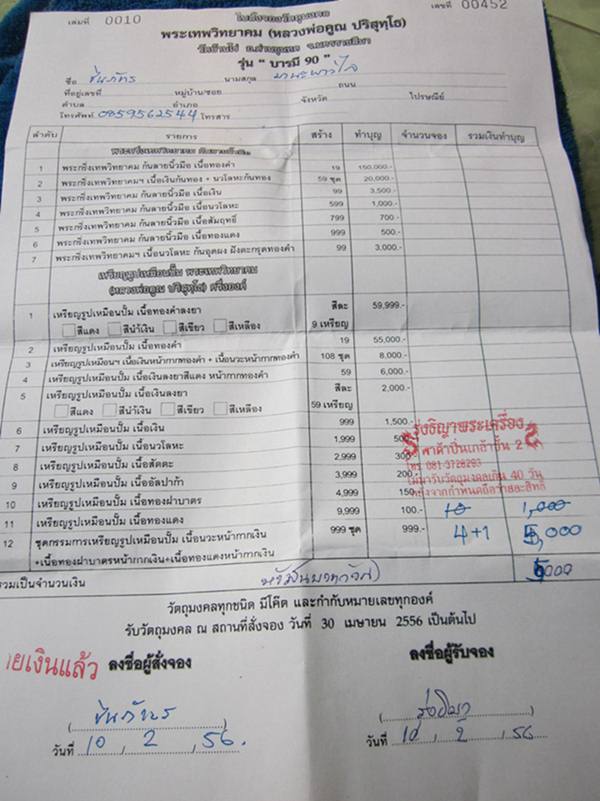 เล่มที่ 0010
ใบสั่งจองวัตถุมงคล
เลขที่ 00452
พระเทพวิทยาคม (หลวงพ่อคูณ ปริสุทฺโธ)
วัดบ้านไร่ อ.ด่านขุนทด จ.นครราชสีมา
รุ่น “ บารมี 90 ”
ชื่อ ชินภัทร นามสกุล
ที่อยู่เลขที่ หมู่บ้าน/ซอย ถนน
ตำบล อำเภอ จังหวัด ไปรษณีย์
โทรศัพท์ 0859562544 โทรสาร
ลำดับ รายการ สร้าง ทำบุญ จำนวนจอง รวมเงินทำบุญ
พระกริ่งเทพวิทยาคม
1 พระกริ่งเทพวิทยาคม ก้นลายนิ้วมือ เนื้อทองคำ 19 150,000.-
2 พระกริ่งเทพวิทยาคมฯ เนื้อเงินก้นทอง + นวโลหะก้นทอง 59 ชุด 20,000.-
3 พระกริ่งเทพวิทยาคม ก้นลายนิ้วมือ เนื้อเงิน 99 3,500.-
4 พระกริ่งเทพวิทยาคม ก้นลายนิ้วมือ เนื้อนวโลหะ 599 1,000.-
5 พระกริ่งเทพวิทยาคม ก้นลายนิ้วมือ เนื้อสัมฤทธิ์ 799 700.-
6 พระกริ่งเทพวิทยาคม ก้นลายนิ้วมือ เนื้อทองแดง 999 500.-
7 พระกริ่งเทพวิทยาคมฯ เนื้อนวโลหะ ก้นอุดผง ฝังตะกรุดทองคำ 99 3,000.-
เหรียญรูปเหมือนปั๊ม พระเทพวิทยาคม
(หลวงพ่อคูณ ปริสุทฺโธ) ครึ่งองค์
1 เหรียญรูปเหมือนปั๊ม เนื้อทองคำลงยา สีละ 59,999.-
สีแดง สีน้ำเงิน สีเขียว สีเหลือง 9 เหรียญ
2 เหรียญรูปเหมือนปั๊ม เนื้อทองคำ 19 55,000.-
3 เหรียญรูปเหมือนฯ เนื้อเงินหน้ากากทองคำ + เนื้อนวะหน้ากากทองคำ 108 ชุด 8,000.-
4 เหรียญรูปเหมือนปั๊ม เนื้อเงินลงยาสีแดง หน้ากากทองคำ 59 6,000.-
5 เหรียญรูปเหมือนปั๊ม เนื้อเงินลงยา สีละ 2,000.-
สีแดง สีน้ำเงิน สีเขียว สีเหลือง 59 เหรียญ
6 เหรียญรูปเหมือนปั๊ม เนื้อเงิน 999 1,500.-
7 เหรียญรูปเหมือนปั๊ม เนื้อนวโลหะ 1,999 500.-
8 เหรียญรูปเหมือนปั๊ม เนื้อสัตตะ 2,999 300.-
9 เหรียญรูปเหมือนปั๊ม เนื้ออัลปาก้า 3,999 200.-
10 เหรียญรูปเหมือนปั๊ม เนื้อทองฝาบาตร 4,999 150.-
11 เหรียญรูปเหมือนปั๊ม เนื้อทองแดง 9,999 100.- 10 1,000
12 ชุดกรรมการเหรียญรูปเหมือนปั๊ม เนื้อนวะหน้ากากเงิน 999 ชุด 999.- 4+1 5,000
+เนื้อทองฝาบาตรหน้ากากเงิน+เนื้อทองแดงหน้ากากเงิน
รวมเป็นจำนวนเงิน
วัตถุมงคลทุกชนิด มีโค๊ต และกำกับหมายเลขทุกองค์
รับวัตถุมงคล ณ สถานที่สั่งจอง วันที่ 30 เมษายน 2556 เป็นต้นไป
ลงชื่อผู้สั่งจอง ลงชื่อผู้รับจอง
ชินภัทร
วันที่ 10 , 2 , 56 . วันที่ 10 , 2 , 56